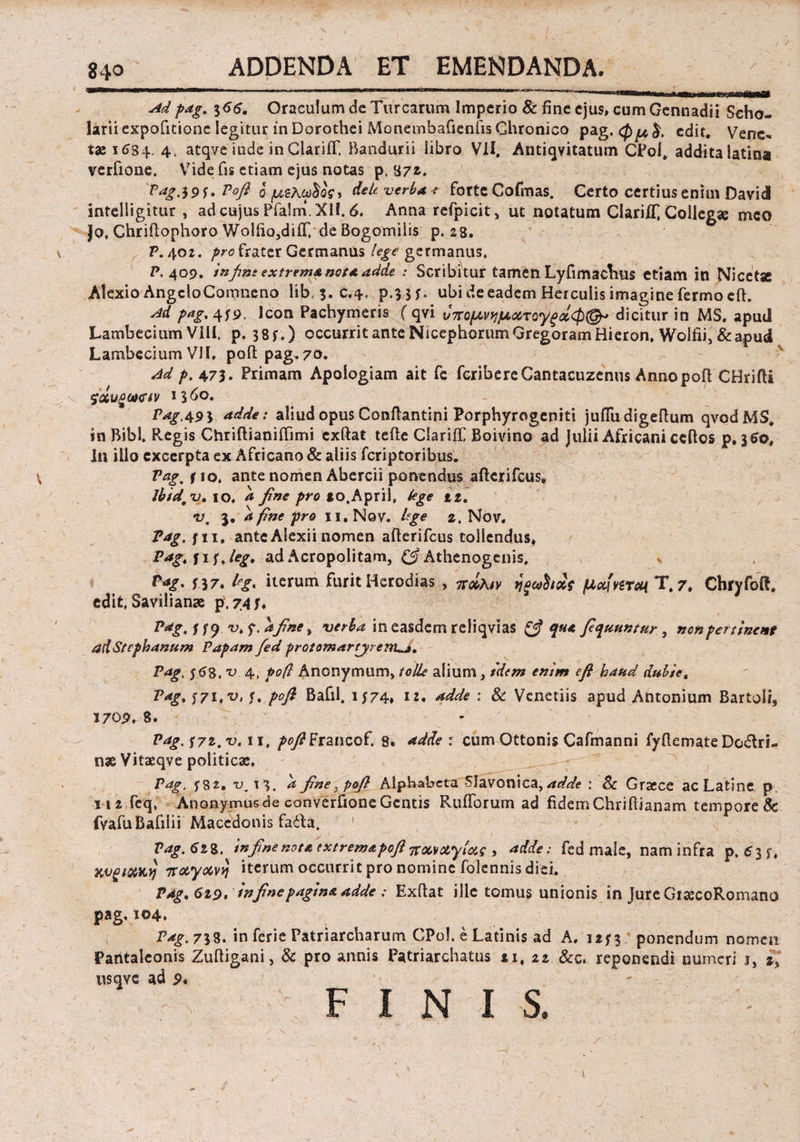 840 ADDENDA ET EMENDANDA.
Ad pag. 366. Oraculum de Turcarum Imperio & fine ejus, cum Gennadii Scho-
larii expositione legitur in Dorothei Monembasiensis Chronico pag. φμδ. edit. Vene-
tæ 1684. 4. atqve inde in Clariss. Bandurii libro VII. Antiqvitatum CPol. addita latina
versione. Vide sis etiam ejus notas p. 872.
Pag. 395. Post ὁ μελωδὸς, dele verba + forte Cosmas. Certo certius enim David
intelligitur, ad cujus Psalm. XII. 6. Anna respicit, ut notatum Clariss. Collegæ meo
Jo. Christophoro Wolfio, diss. de Bogomilis p. 28.
P. 402. pro frater Germanus lege germanus.
P. 409. in fine extrema nota adde : Scribitur tamen Lysimachus etiam in Nicetæ
Alexio Angelo Comneno lib. 3. c. 4. p. 335. ubi de eadem Herculis imagine sermo est.
Ad pag. 459. Icon Pachymeris (qvi ὑπομνηματογράφ@ dicitur in MS. apud
Lambecium VIII. p. 385.) occurrit ante Nicephorum Gregoram Hieron. Wolfii, & apud
Lambecium VII. post pag. 70.
Ad p. 473. Primam Apologiam ait se scribere Cantacuzenus Anno post CHristi
ϛαύρωσιν 1360.
Pag. 493 adde: aliud opus Constantini Porphyrogeniti jussu digestum qvod MS.
in Bibl. Regis Christianissimi exstat teste Clariss. Boivino ad Julii Africani cestos p. 360.
In illo excerpta ex Africano & aliis scriptoribus.
Pag. 510. ante nomen Abercii ponendus asteriscus.
Ibid. v. 10. a fine pro 20. April. lege 22.
v. 3. a fine pro 11. Nov. lege 2. Nov.
Pag. 511. ante Alexii nomen asteriscus tollendus.
Pag. 515. leg. ad Acropolitam, & Athenogenis.
Pag. 537. leg. iterum furit Herodias, πάλιν ἡρωδιὰς μαίνεται T. 7. Chrysost.
edit. Savilianæ p. 745.
Pag. 559 v. 5. a fine, verba in easdem reliqvias & quæ sequuntur, non pertinent
ad Stephanum Papam sed protomartyrem.
Pag. 568. v 4. post Anonymum, tolle alium, idem enim est haud dubie.
Pag. 571. v. 5. post Basil. 1574. 12. adde : & Venetiis apud Antonium Bartoli,
1709. 8.
Pag. 572. v. 11. post Francof. 8. adde : cum Ottonis Casmanni systemate Doctri-
næ Vitæqve politicæ.
Pag. 582. v. 13. a fine, post Alphabeta Slavonica, adde : & Græce ac Latine p.
112 seq. Anonymus de conversione Gentis Russorum ad fidem Christianam tempore &
svasu Basilii Macedonis facta.
Pag. 628. in fine nota extrema post παναγίας, adde: sed male, nam infra p. 635.
κυριακὴ παγανὴ iterum occurrit pro nomine solennis diei.
Pag. 629. in fine pagina adde : Exstat ille tomus unionis in Jure GræcoRomano
pag. 104.
Pag. 738. in serie Patriarcharum CPol. è Latinis ad A. 1253 ponendum nomen
Pantaleonis Zustigani, & pro annis Patriarchatus 21, 22 &c. reponendi numeri 1, 2,
usqve ad 9.
FINIS.